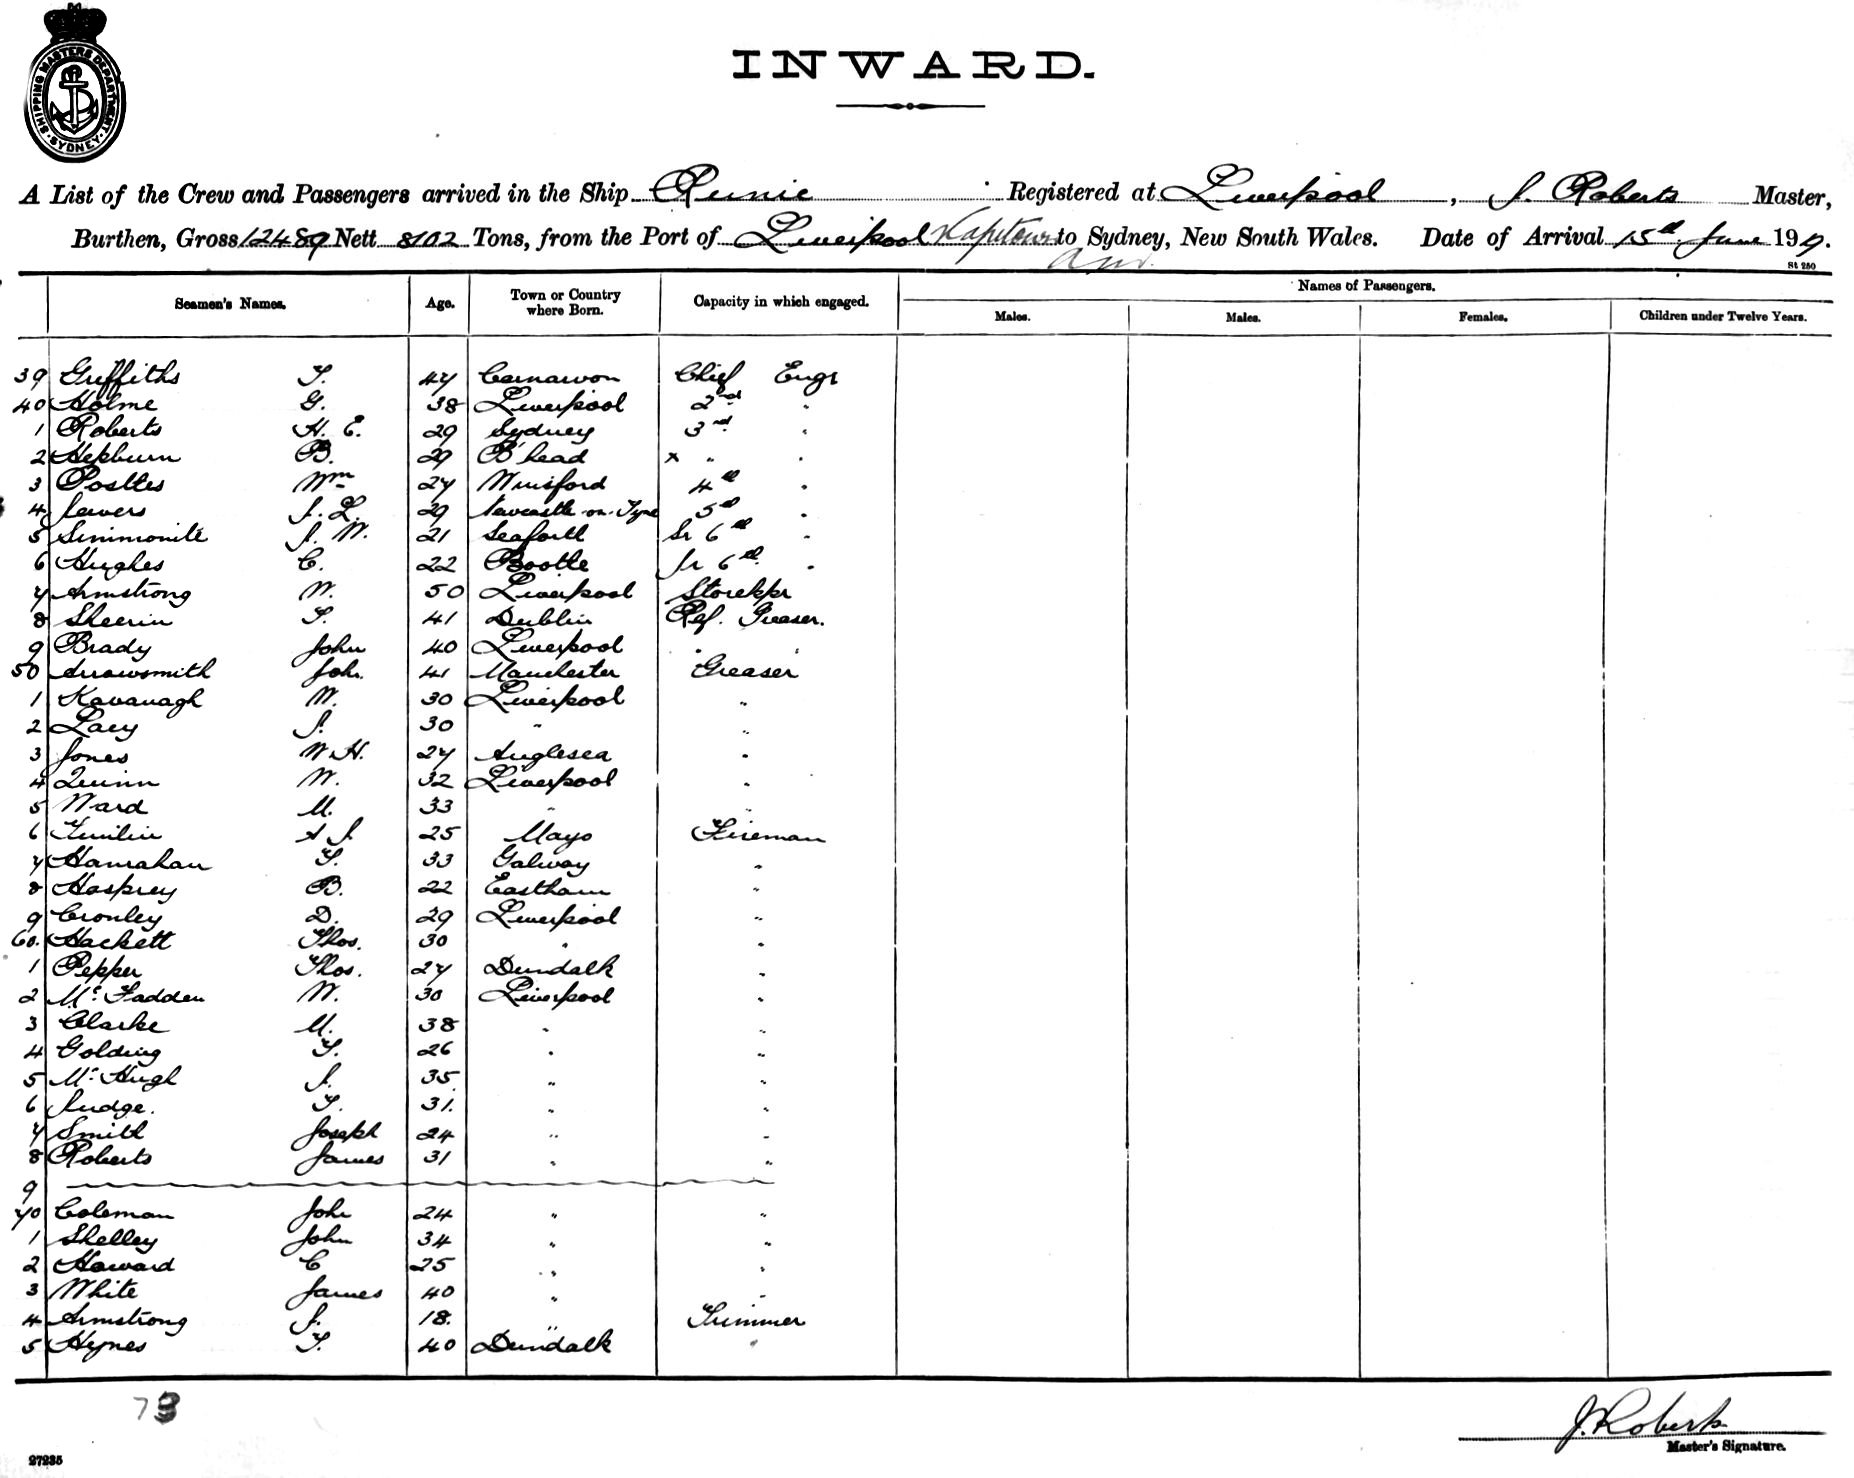 SHIPPING MASTERS DEPARTMENT SYDNEY
INWARD.
A List of the Crew and Passengers arrived in the Ship Runic Registered at Liverpool, J. Roberts Master,
Burthen, Gross 12489 Nett 8102 Tons, from the Port of Liverpool Kapetown to Sydney, New South Wales. Date of Arrival 15th June 19
St 250
Seamen's Names. Age. Town or Country where Born. Capacity in which engaged. Names of Passengers.
Males. Males. Females. Children under Twelve Years.
39 Griffiths T. 47 Carnarvon Chief Engr
40 Holme G. 38 Liverpool 2nd "
1 Roberts H. E. 29 Sydney 3rd "
2 Hepburn B. 29 B'head x " "
3 Postles Wm 27 Winsford 4th "
4 Jewers J. L. 29 Newcastle-on-Tyne 5th "
5 Simmonite J. W. 21 Seaforth Sr 6th "
6 Hughes C. 22 Bootle Jr 6th "
7 Armstrong W. 50 Liverpool Storekpr
8 Sheerin T. 41 Dublin Ref. Greaser.
9 Brady John 40 Liverpool " "
50 Arrowsmith John 41 Manchester Greaser
1 Kavanagh W. 30 Liverpool "
2 Lacy J. 30 " "
3 Jones W H. 27 Anglesea "
4 Quinn W. 32 Liverpool "
5 Ward M. 33 " "
6 A J. 25 Mayo Fireman
7 Hanrahan T. 33 Galway "
8 Hasprey B. 22 Eastham "
9 Cronley D. 29 Liverpool "
60. Hackett Thos. 30 " "
1 Pepper Thos. 27 Dundalk "
2 McFadden W. 30 Liverpool "
3 Clarke M. 38 " "
4 Golding T. 26 " "
5 McHugh J. 35 " "
6 Judge. T. 31. " "
7 Smith Joseph 24 " "
8 Roberts James 31 " "
9
70 Coleman John 24 " "
1 Shelley John 34 " "
2 Howard C 25 " "
3 White James 40 " "
4 Armstrong J. 18. " Trimmer
5 Hynes T. 40 Dundalk "
73
J. Roberts
Master's Signature.
27235